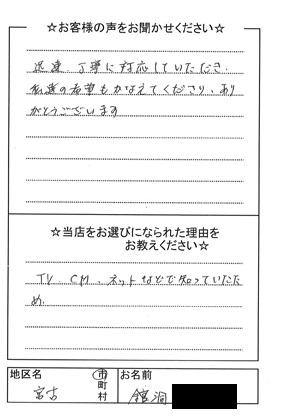 ☆お客様の声をお聞かせください☆
迅速、丁寧に対応していただき、
私達の希望もかなえてくださり、あり
がとうございます
☆当店をお選びになられた理由を
お教えください☆
TV、CM、ネットなどで知っていたた
め。
地区名 宮古 市町村 お名前 舘洞